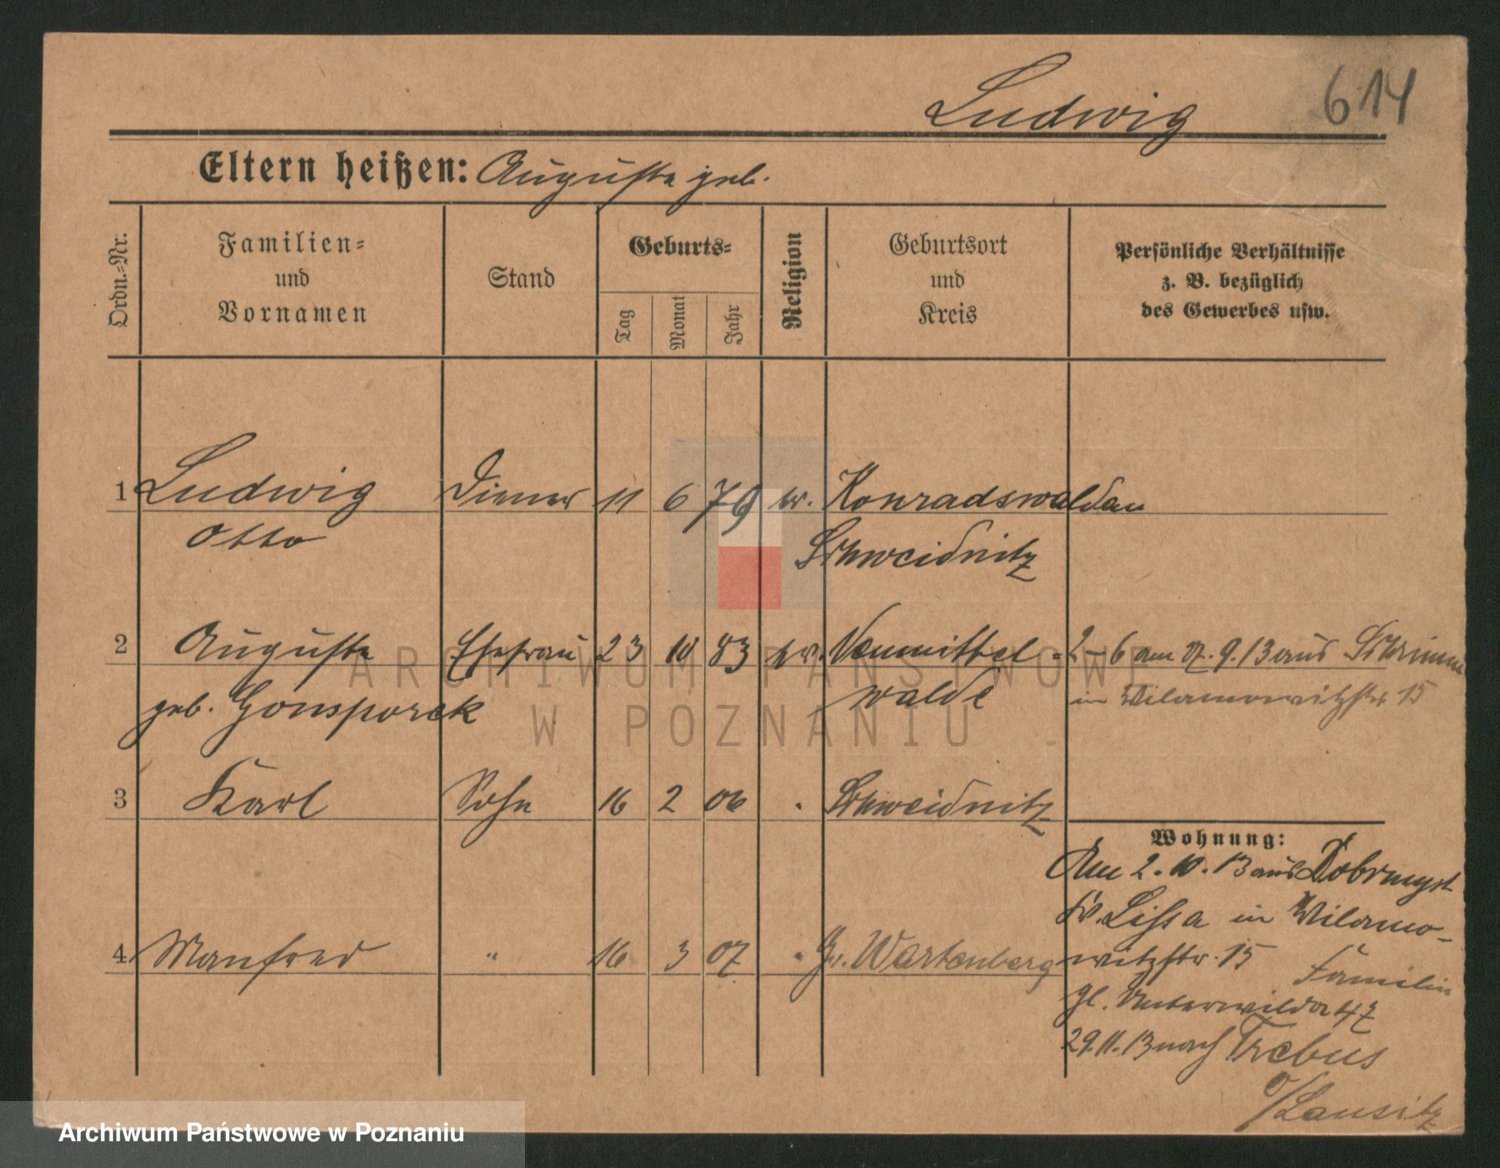 Ludwig 614
Eltern heißen: Auguste geb.
Ordn.-Nr.
Familien-
und
Vornamen
Stand
Geburts-
Tag
Monat
Jahr
Religion
Geburtsort
und
Kreis
Persönliche Verhältnisse
z. B. bezüglich
des Gewerbes usw.
1 Ludwig Diener 11 6 79 ev. Konradswaldau
Otto Schweidnitz
2 Auguste Ehefrau 23 10 83 ev. Neumittel-
walde
geb. Gonsporek
2-6 am 27.9.13 aus Schrimm
in Wilamowitzstr 15
3 Karl Sohn 16 2 06 " Schweidnitz
4 Manfred " 16 3 07 " Gr. Wartenberg
Wohnung:
Am 2.10.13 aus
Kr. Lissa in Wilamo-
witzstr. 15 Familie
gl. Unterwilda 47
29.11.13 nach Trebus
O/Lausitz
ARCHIWUM PAŃSTWOWE
W POZNANIU
Archiwum Państwowe w Poznaniu